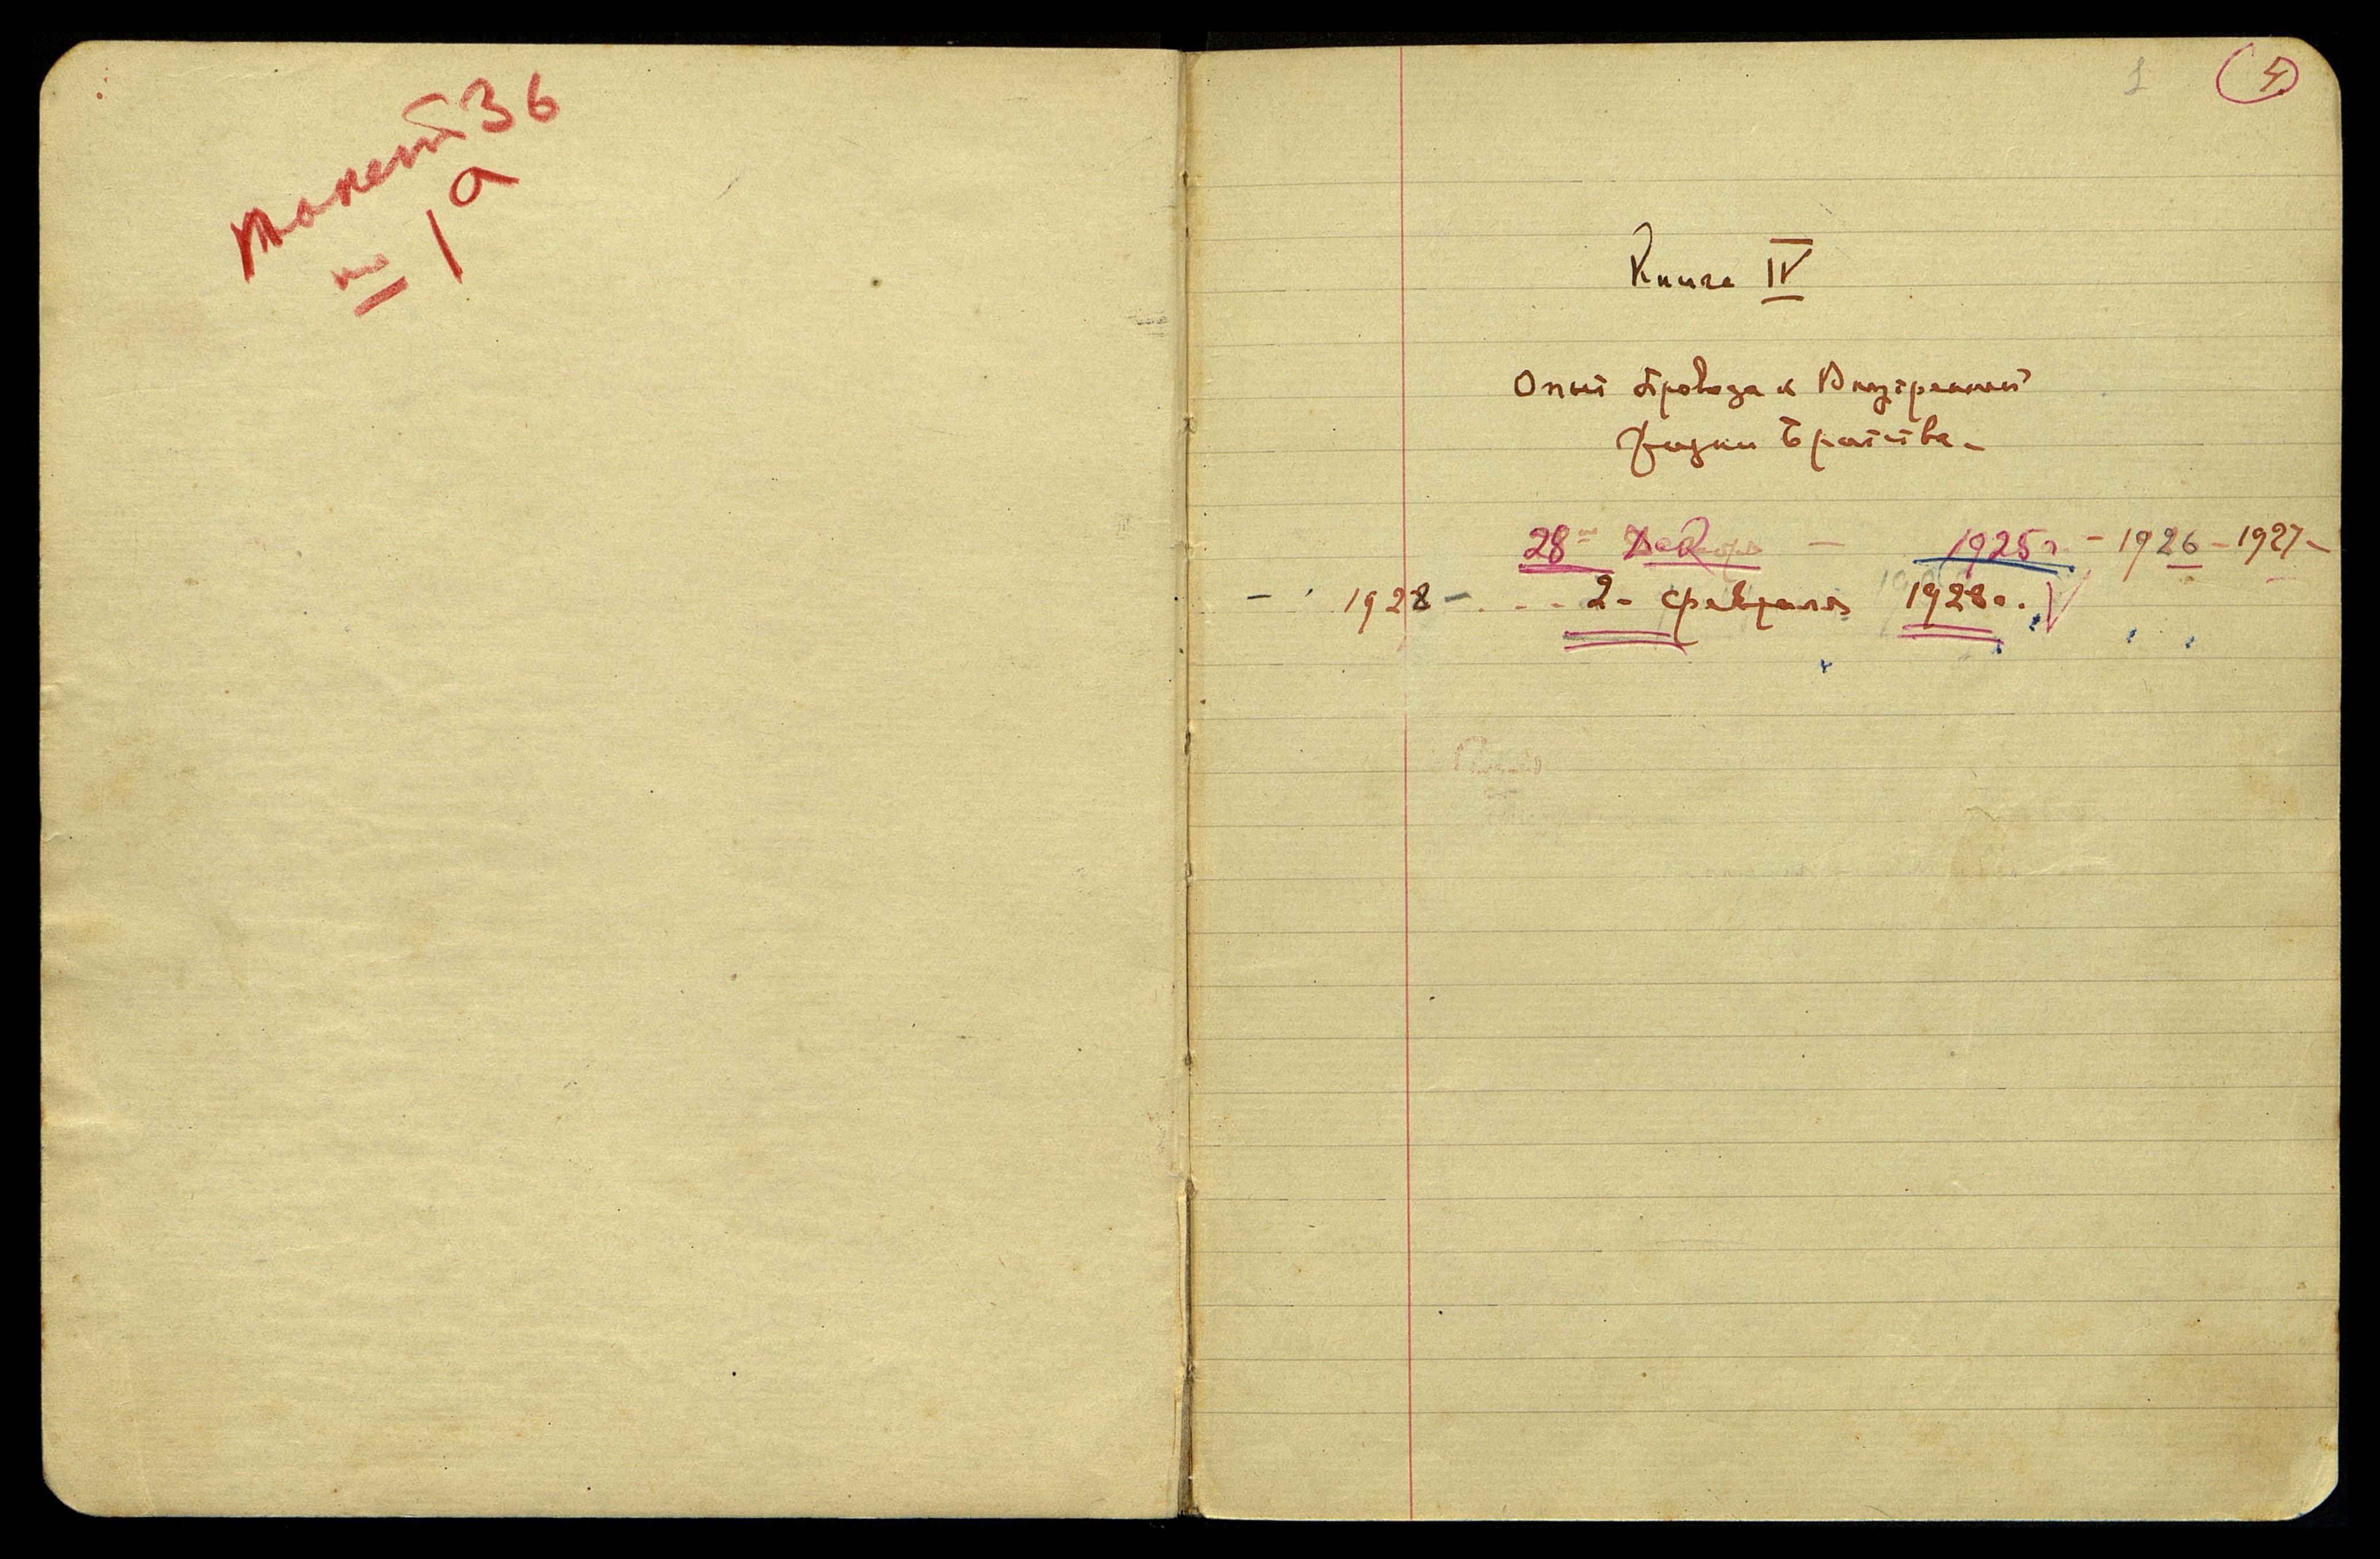 пакет 36
№ 1а
1 4
Книга IV
Опыт Провода к Внутренней
Жизни Братства –
28го Декабря – 1925 г. – 1926 – 1927 –
– 1928 – . . . 2 – февраля 1928 г. V